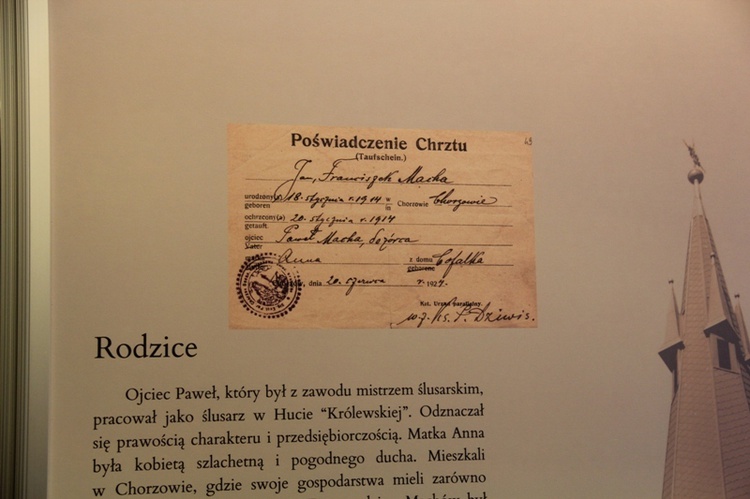 Poświadczenie Chrztu
49
(Taufschein.)
Jan, Franciszek Macha
urodzony(a) 18. stycznia r. 1914 w Chorzowie Chorzowie
geboren in
ochrzcony(a) 20. stycznia r. 1914
getauft.
ojciec Paweł Macha, dozórca
Vater
Anna z domu Cofalka
geborene
dnia 20. czerwca r. 1924.
Kat. Urząd parafjalny.
w z. Ks. P. Dziwis.
Rodzice
Ojciec Paweł, który był z zawodu mistrzem ślusarskim,
pracował jako ślusarz w Hucie “Królewskiej”. Odznaczał
się prawością charakteru i przedsiębiorczością. Matka Anna
była kobietą szlachetną i pogodnego ducha. Mieszkali
w Chorzowie, gdzie swoje gospodarstwa mieli zarówno